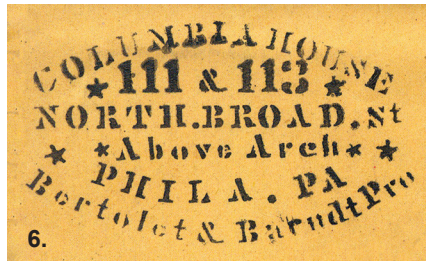 COLUMBIA HOUSE
111 & 113
NORTH.BROAD.St
Above Arch
PHILA. PA
Bertolet & Barndt Pro
6.